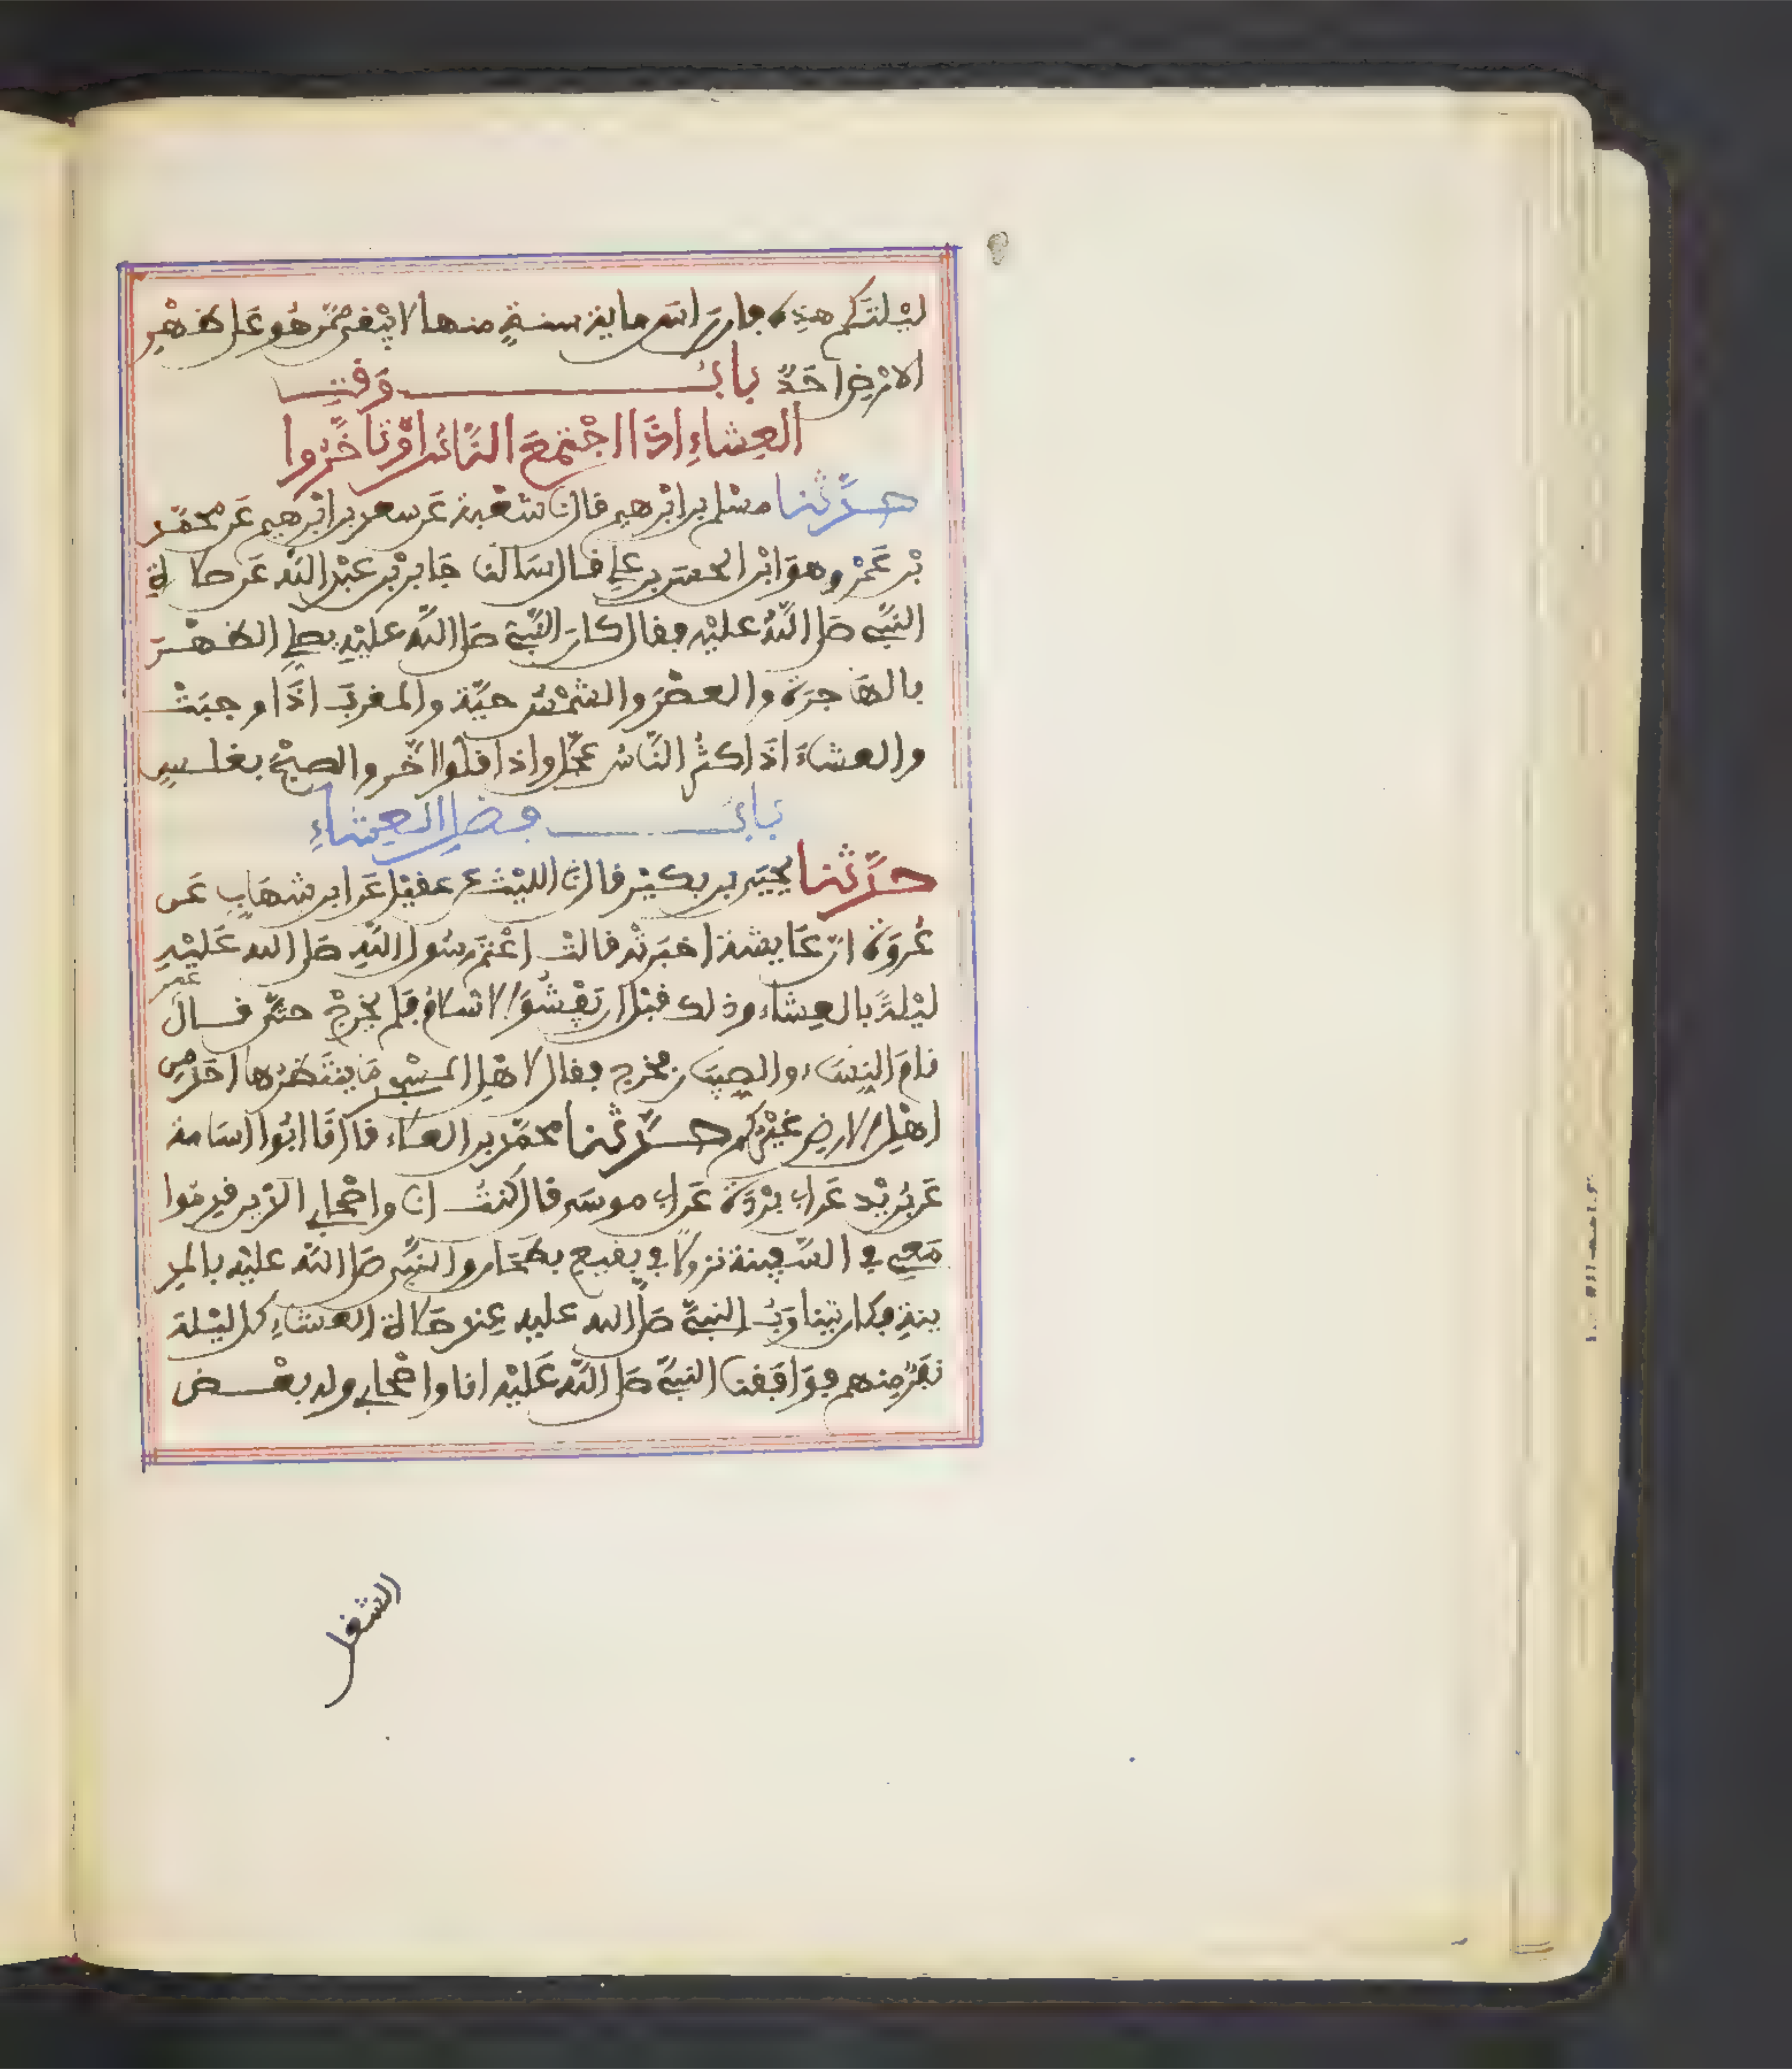 ليْلتَكم هذِهِ فإن رأس ماية سنةٍ منها لا يبْقى ممّن هُو عَلى ظهْرِ
الارْضِ احَدٌ بابُ وَقتِ
العِشاءِ اِذَا اجْتمعَ النَّاسُ اوْ تأخَّرُوا
حدَّثنا مسْلم بن ابْرهيم قال نا شعْبة عَن سعد بن ابْرهيم عَن محمّد
بْن عَمْرٍو هوَ ابْن الحسَن بن علي قال سَالنا جَابر بْن عبْد اللّه عَن صلاة
النّبيّ صلى اللّهُ عليْه فقال كان النّبيّ صَلى اللّه عليْهِ يصلّي الظهْرَ
بالهَاجرَة والعصْرَ والشمْسُ حيّة والمغربَ اذَا وجبَتْ
والعشاءَ اذَا كثُر النَّاسُ عجّل واذا قلّوا اخّر والصبْحَ بغلسٍ
بَابُ فضلِ العِشاءِ
حدَّثنا يحيَى بن بكيْر قال نا الليْث عن عقيْل عَن ابن شهَابٍ عَن
عُروَةَ انّ عَايشة اخبَرتْه قالتْ اعْتمَ رسُول اللّهِ صَلى الله عَليْهِ
ليْلةً بالعِشاء وذلك قبْل ان يَفْشُوَ الاسلامُ فلم يخرجْ حتّى قال عمر
نامَ النِسَاء والصِبيَان فخرج فقال لاهْلِ المسْجد مَا ينتَظرُها احَدٌ مِن
اهْلِ الارضِ غيْرُكم حدَّثنا محمّد بن العلاء قال نَا ابُوا اسَامة
عَن بُرَيْد عَن ابي برْدَةَ عَن ابي موسَى قال كنتُ انا واصْحابي الذين قدِمُوا
مَعِي في السّفينة نزولًا في بقيع بطحَان والنبيّ صَلى اللّه عليْه بالمد
ينةِ فكان يتناوَبُ النبيَّ صَلى الله عليه عِند صَلاة العشاءِ كل ليْلة
نفَرٌ مِنهم فوَافَقْنا النبيّ صَلى اللّه عَليْه انا واصْحابي وله بعْض
الشغل